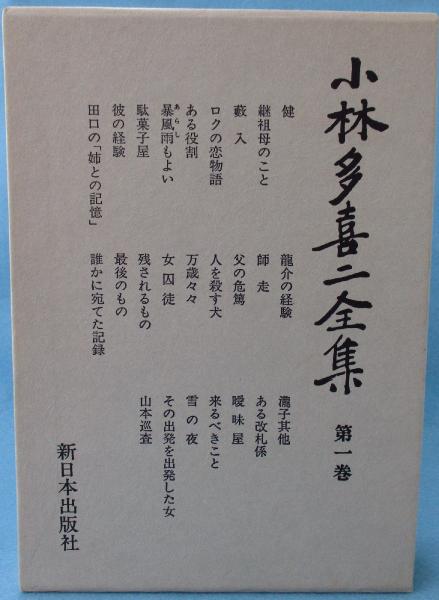 小林多喜二全集 第一巻
健
継祖母のこと
藪入
ロクの恋物語
ある役割
暴風雨もよい
あらし
駄菓子屋
彼の経験
田口の「姉との記憶」
龍介の経験
師走
父の危篤
人を殺す犬
万歳々々
女囚徒
残されるもの
最後のもの
誰かに宛てた記録
瀧子其他
ある改札係
曖昧屋
来るべきこと
雪の夜
その出発を出発した女
山本巡査
新日本出版社